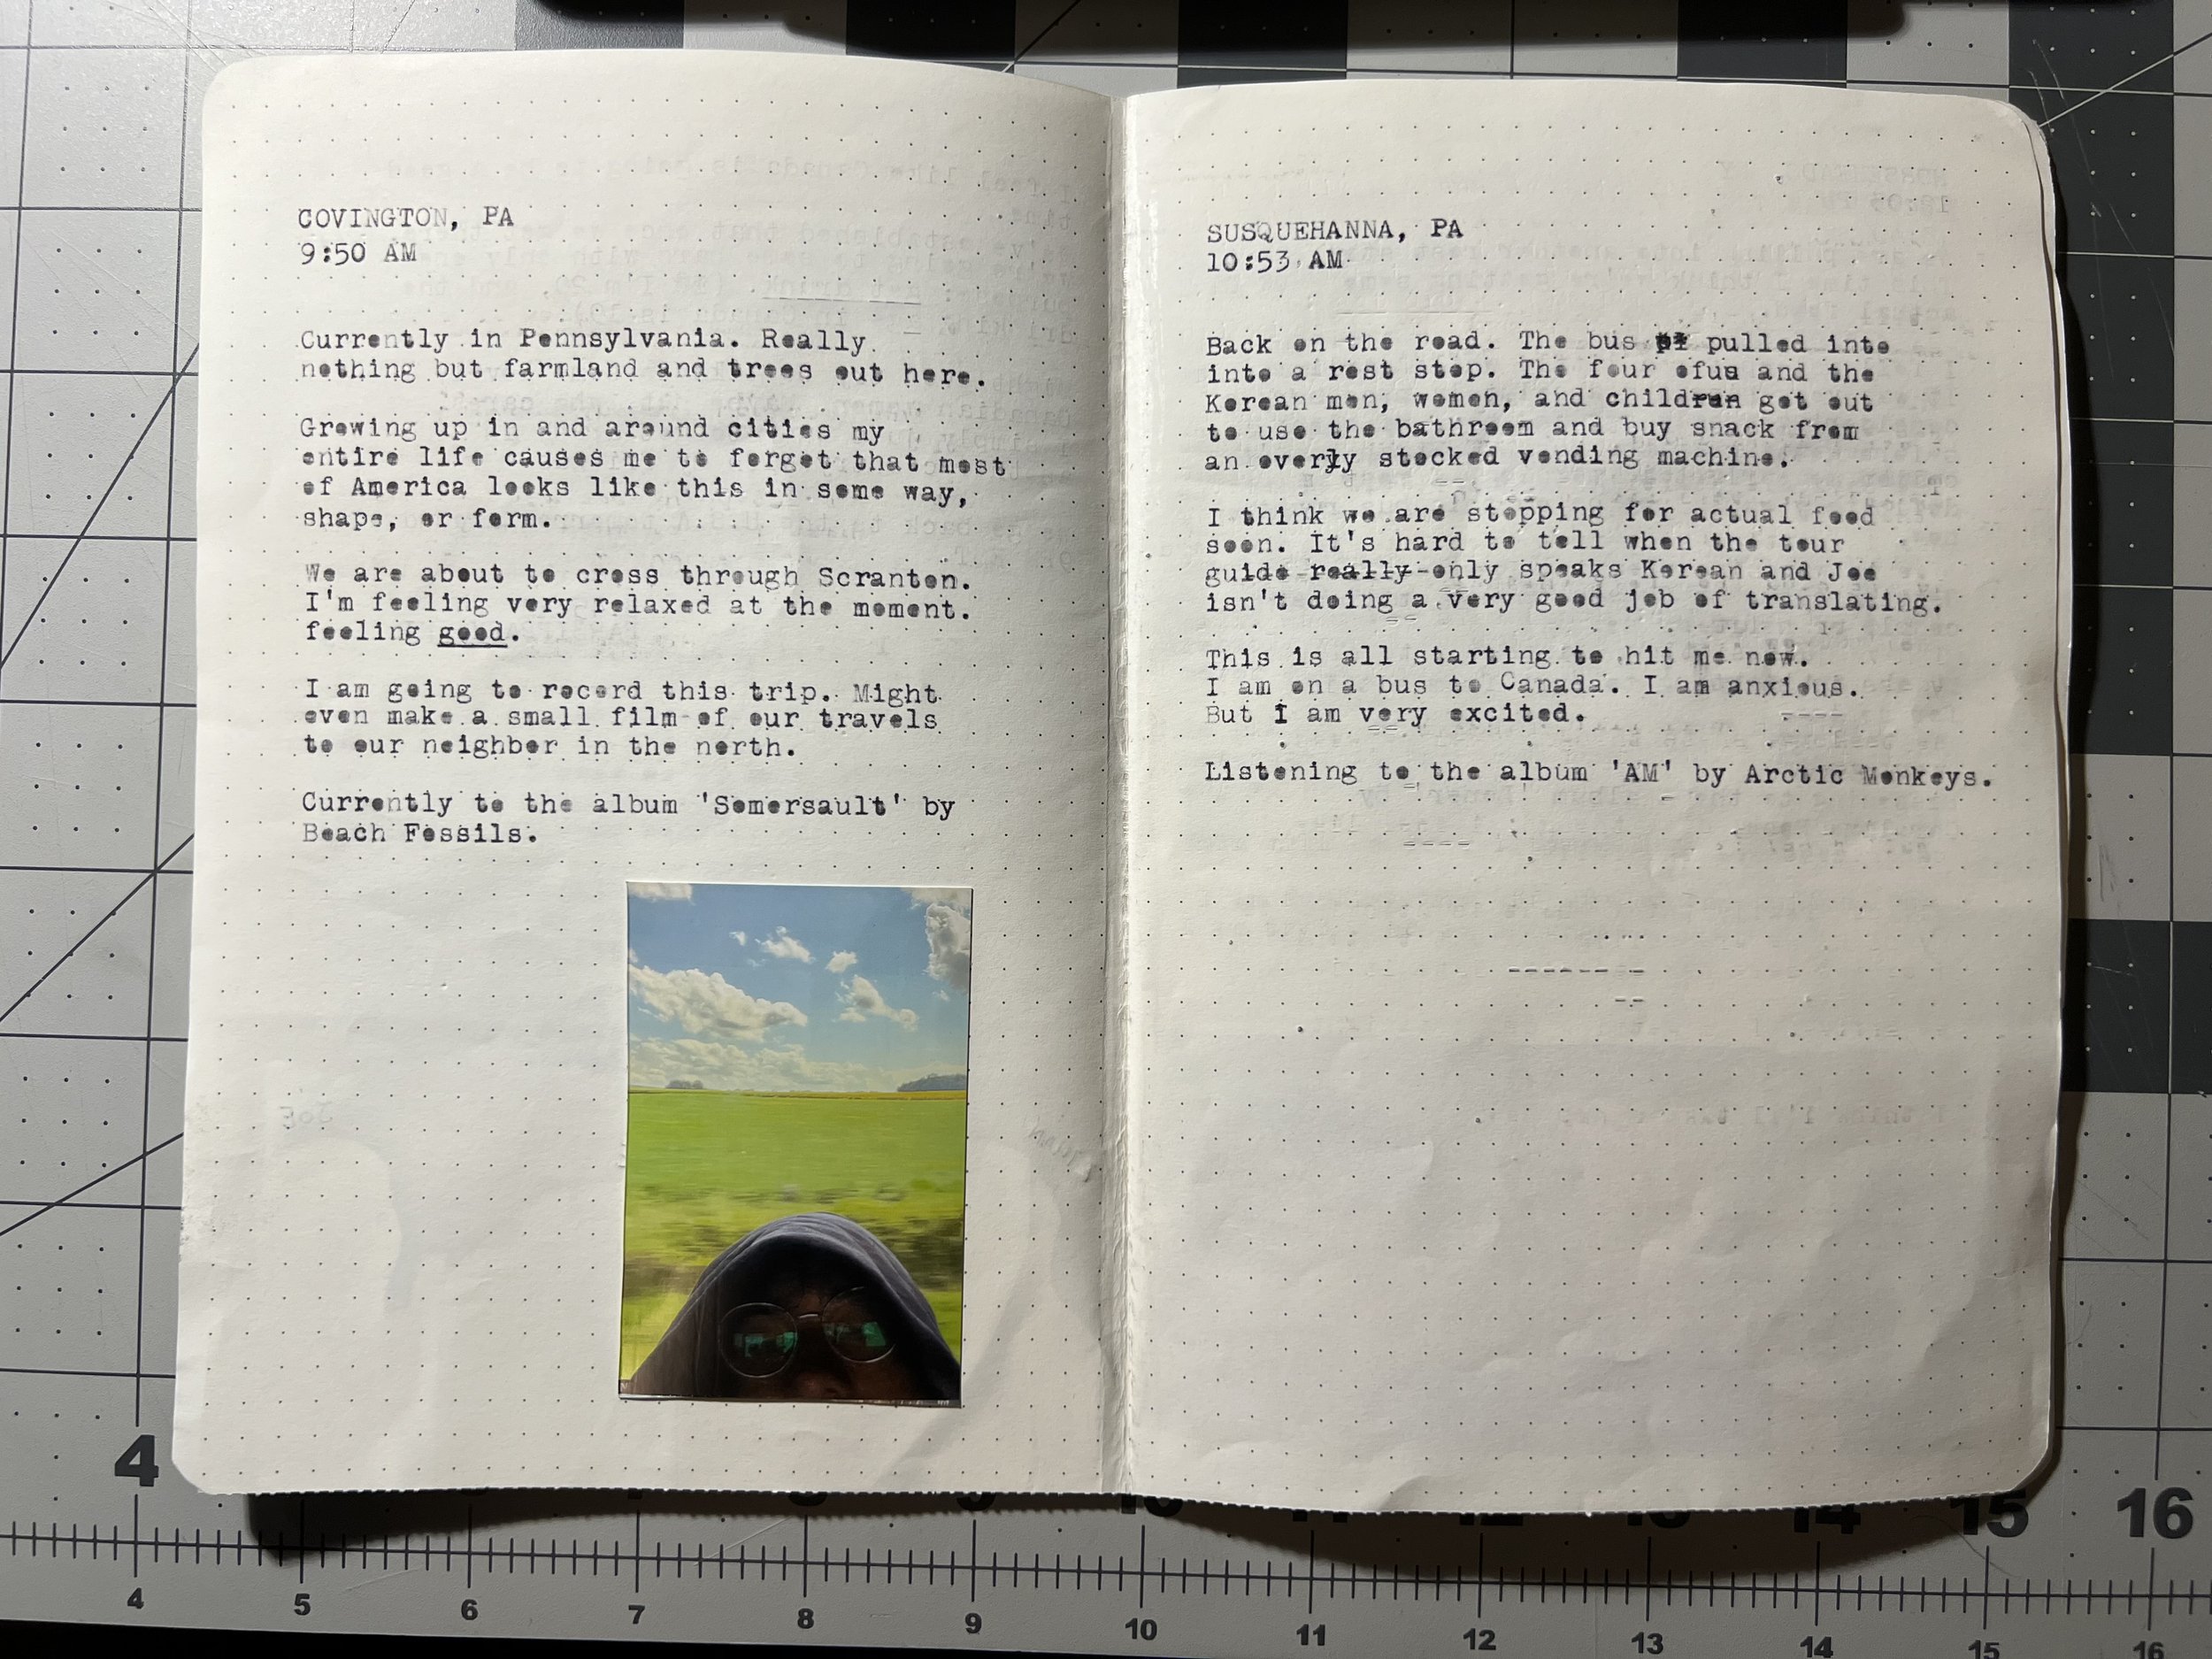 COVINGTON, PA
9:50 AM
Currently in Pennsylvania. Really
nothing but farmland and trees out here.
Growing up in and around cities my
entire life causes me to forget that most
of America looks like this in some way,
shape, or form.
We are about to cross through Scranton.
I'm feeling very relaxed at the moment.
feeling good.
I am going to record this trip. Might
even make a small film of our travels
to our neighbor in the north.
Currently to the album 'Somersault' by
Beach Fossils.
SUSQUEHANNA, PA
10:53 AM
Back on the road. The bus pulled into
into a rest stop. The four ofus and the
Korean men, women, and children got out
to use the bathroom and buy snack from
an overly stocked vending machine.
I think we are stopping for actual food
soon. It's hard to tell when the tour
guide really only speaks Korean and Joe
isn't doing a very good job of translating.
This is all starting to hit me now.
I am on a bus to Canada. I am anxious.
But I am very excited.
Listening to the album 'AM' by Arctic Monkeys.
4
7 8 9 10 11 12 13 14 15 16
4 5 6 7 8 9 10 11 12 13 14 15 16